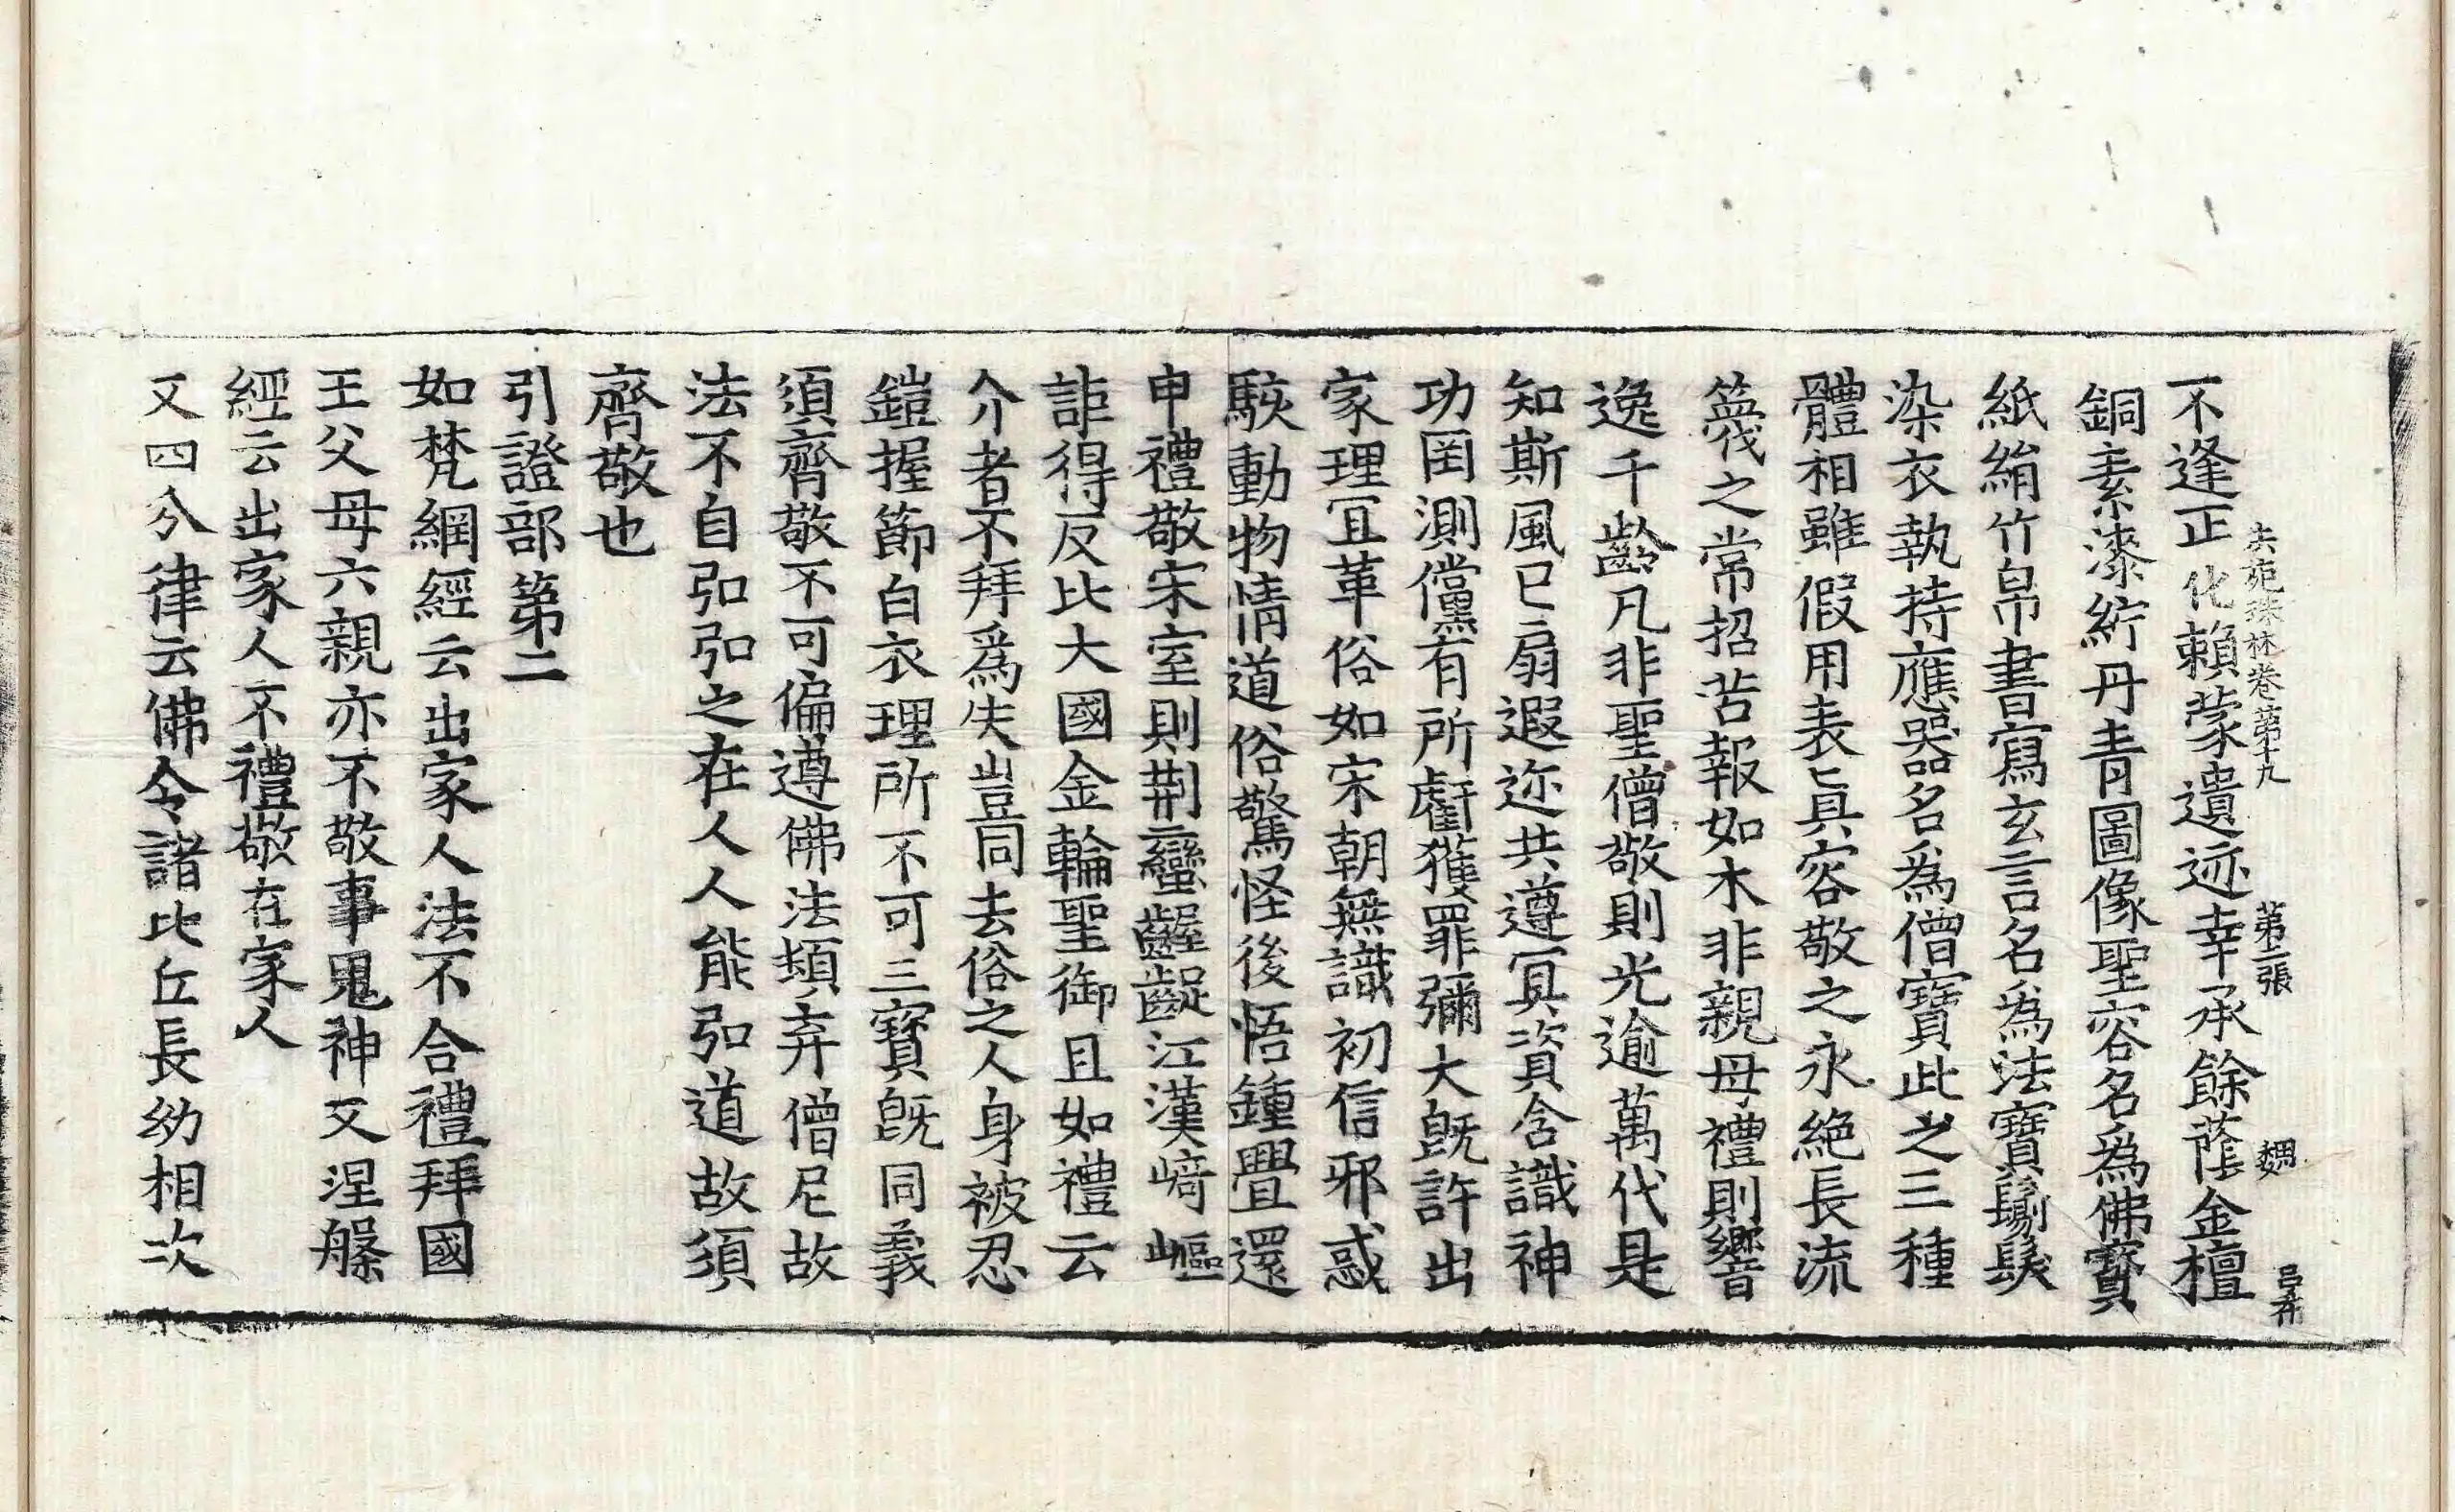 法苑珠林卷第十九 第二張
不逢正化賴蒙遺迹幸承餘蔭金檀
銅素漆紵丹青圖像聖容名爲佛寶
紙絹竹帛書寫玄言名爲法寶鬀髮
染衣執持應器名爲僧寶此之三種
體相雖假用表真容敬之永絕長流
篾之常招苦報如木非親母禮則響
逸千齡凡非聖僧敬則光逾萬代是
知斯風已扇遐迩共遵冥資含識神
功罔測儻有所虧獲罪彌大旣許出
家理冝革俗如宋朝無識初信邪惑
駭動物情道俗驚怪後悟鍾舋還
申禮敬宋室則荆蠻齷齪江漢崎嶇
詎得反比大國金輪聖御且如禮云
介者不拜爲失豈同去俗之人身被忍
鎧握節白衣理所不可三寶旣同義
須齊敬不可偏遵佛法頓弃僧尼故
法不自弘弘之在人人能弘道故須
齊敬也
引證部第二
如梵綱經云出家人法不合禮拜國
王父母六親亦不敬事鬼神又涅槃
經云出家人不禮敬在家人
又四分律云佛令諸比丘長幼相次